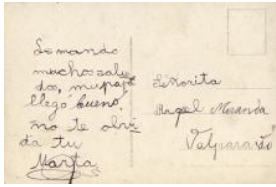 Le mando
muchos salu
dos, mi papá
llegó bueno.
no te olvi-
da tu
Marta
Señorita
Raquel Miranda
Valparaíso